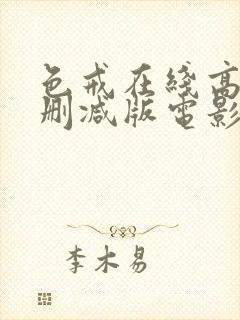 色戒在线高
删减版电影
李木易